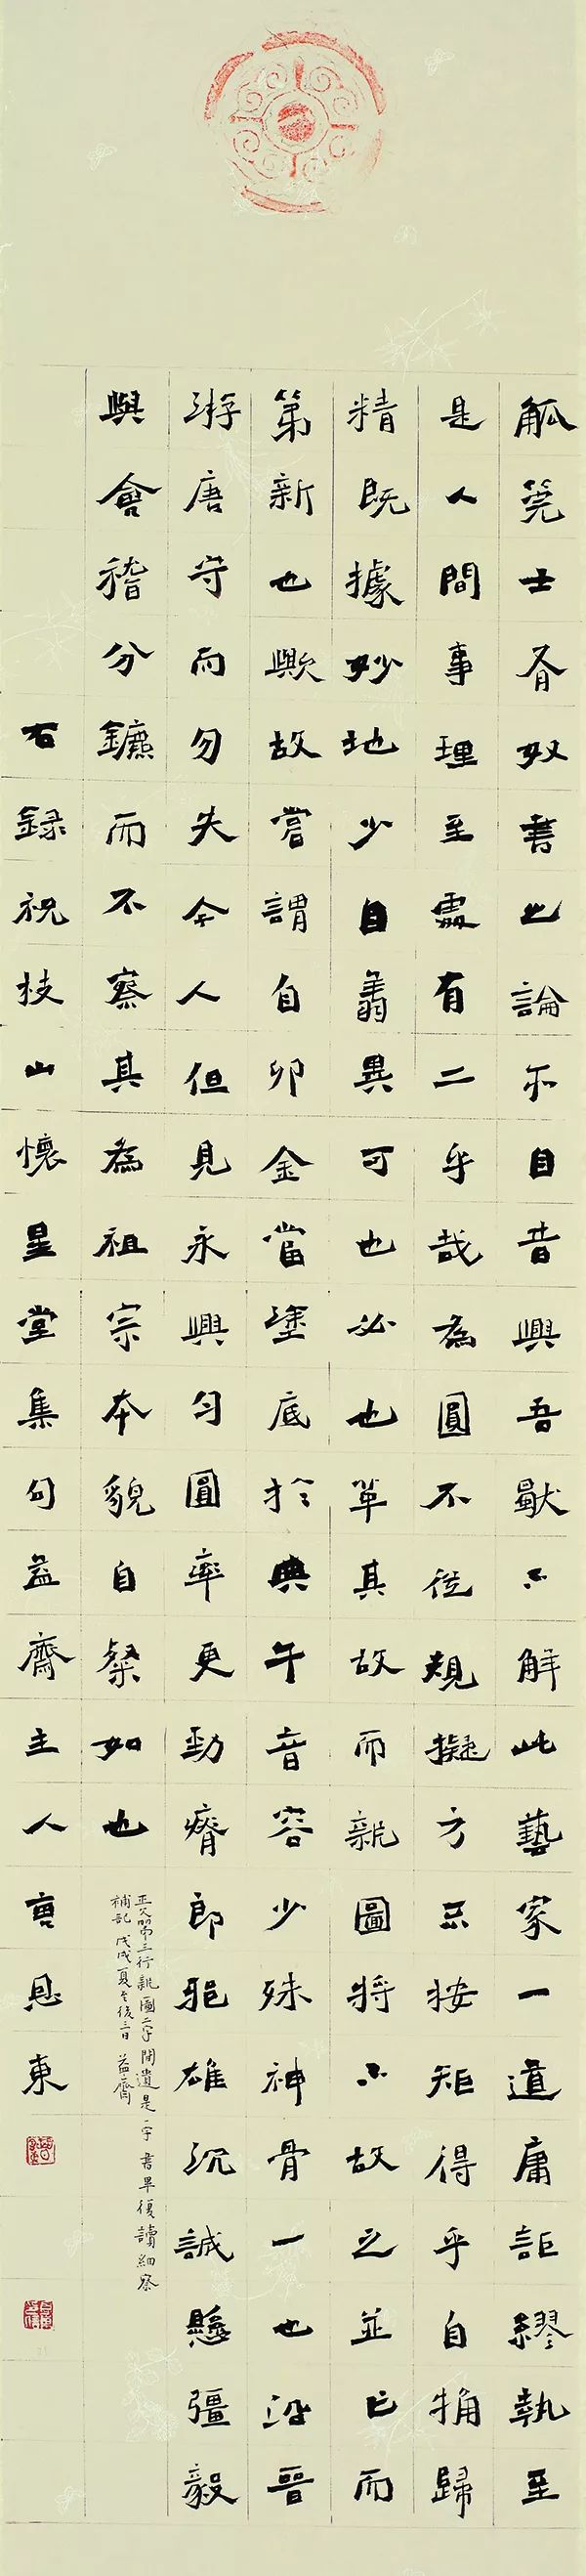 觚筦士有奴書之論亦自昔興吾獨不解此藝家一道庸詎繆執至
是人間事理至處有二乎哉為圓不從規擬方不按矩得乎自觕歸
精既據妙地少自翥異可也必也革其故而新圖將不故之並亡而
第新也歟故嘗謂自卯金當塗底於典午音容少殊神骨一也沿晉
游唐守而勿失今人但見永興勻圓率更勁瘠郎邪雄沉誠懸彊毅
與會稽分鑣而不察其為祖宗本貌自粲如也
正文第三行新圖二字間遺是一字書畢復讀細察
補記 戊戌夏至後三日 益齋
右錄祝枝山懷星堂集句益齋主人恩東